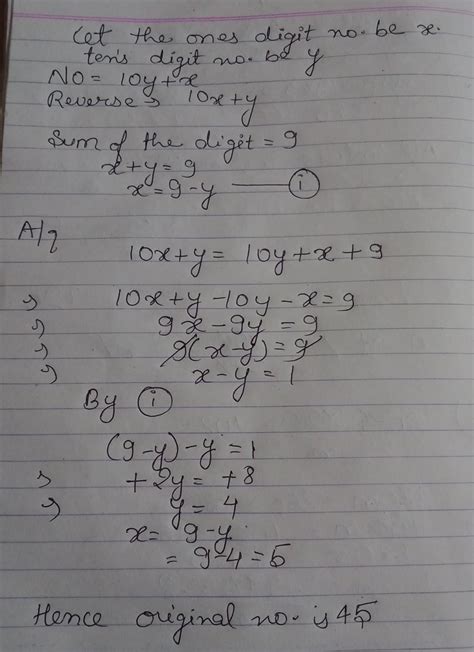 Let the ones digit no. be x.
ten's digit no. be y
NO = 10y+x
Reverse → 10x+y
Sum of the digit = 9
x+y=9
x=9-y —— (i)
A/q
10x+y = 10y+x+9
→ 10x+y-10y-x=9
→ 9x-9y=9
→ 9(x-y)=9
→ x-y=1
By (i)
(9-y)-y=1
→ +2y= +8
→ y= 4
x= 9-y
= 9-4=5
Hence original no. is 45